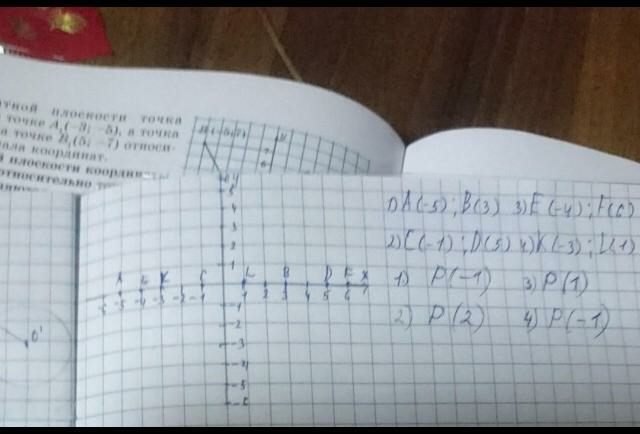 тной плоскости точка
точке A₁(−3; −5), а точка
а точке B₁(5; −7) относи-
ала координат.
й плоскости координ
относительно
(−5;7) y
6
y
5
4
3
2
1
A E K C L B D F x
-6 -5 -4 -3 -2 -1 1 2 3 4 5 6 7
-1
-2
-3
-4
-5
-6
O'
1) A(-5); B(3) 3) E(-4); F(6)
2) C(-1); D(5) 4) K(-3); L(1)
1) P(-1) 3) P(1)
2) P(2) 4) P(-1)